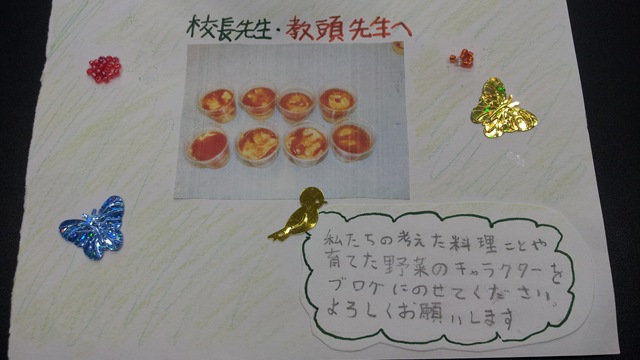 校長先生・教頭先生へ
私たちの考えた料理ことや
育てた野菜のキャラクターを
ブログにのせてください。
よろしくお願いします